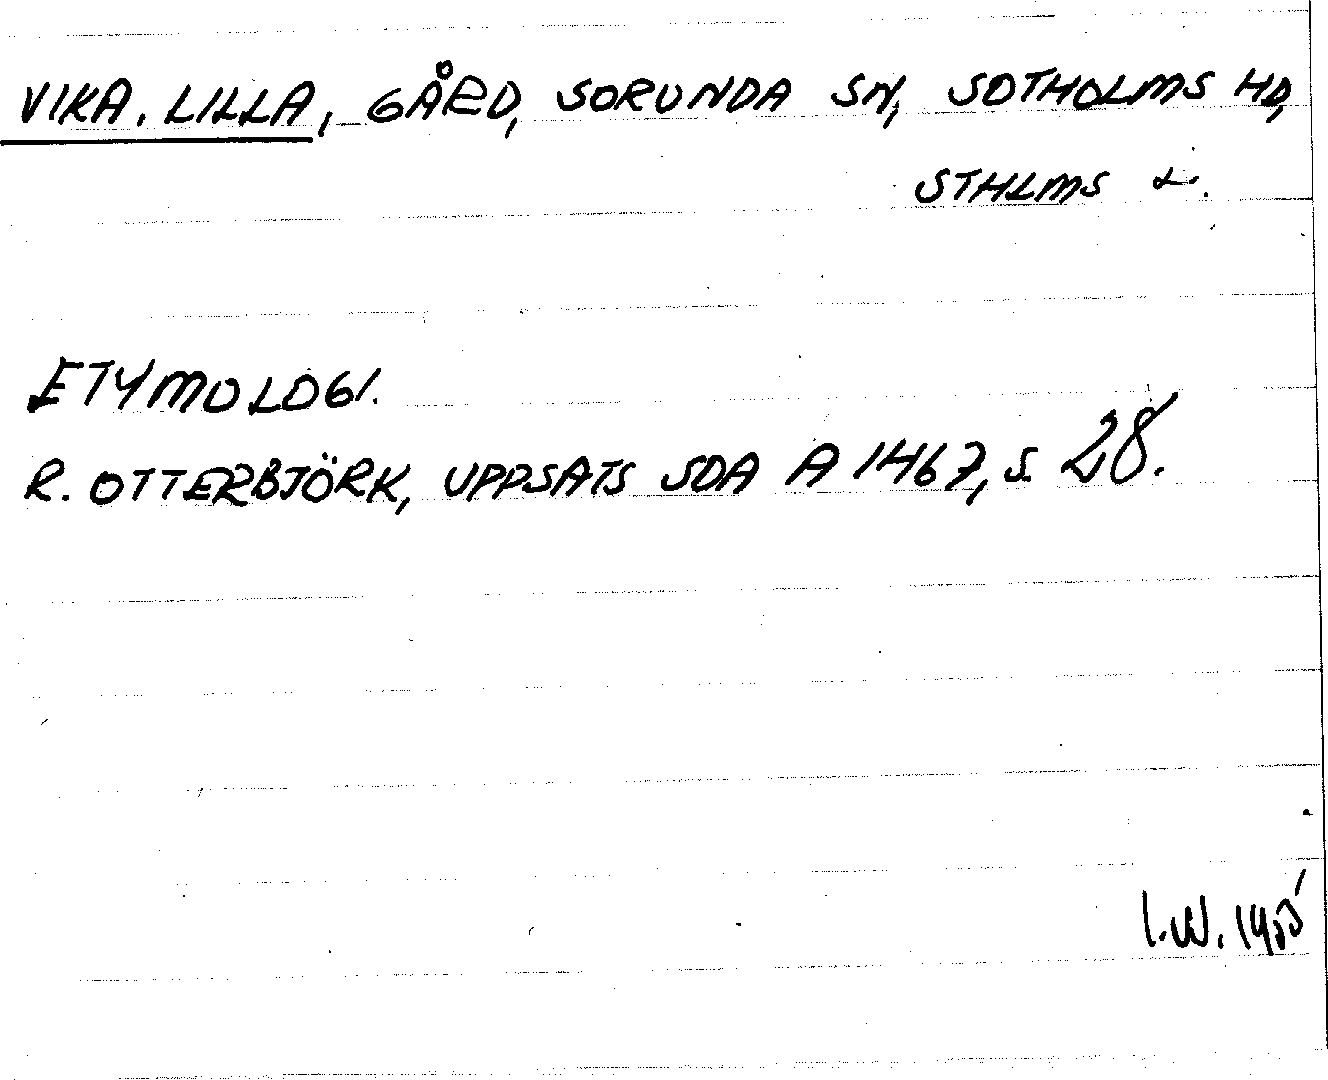 VIKA, LILLA, GÅRD, SORUNDA SN, SOTHOLMS HD,
STHLMS L.
ETYMOLOGI.
R. OTTERBJÖRK, UPPSATS SOA A 1467, S. 28.
I.W. 1955